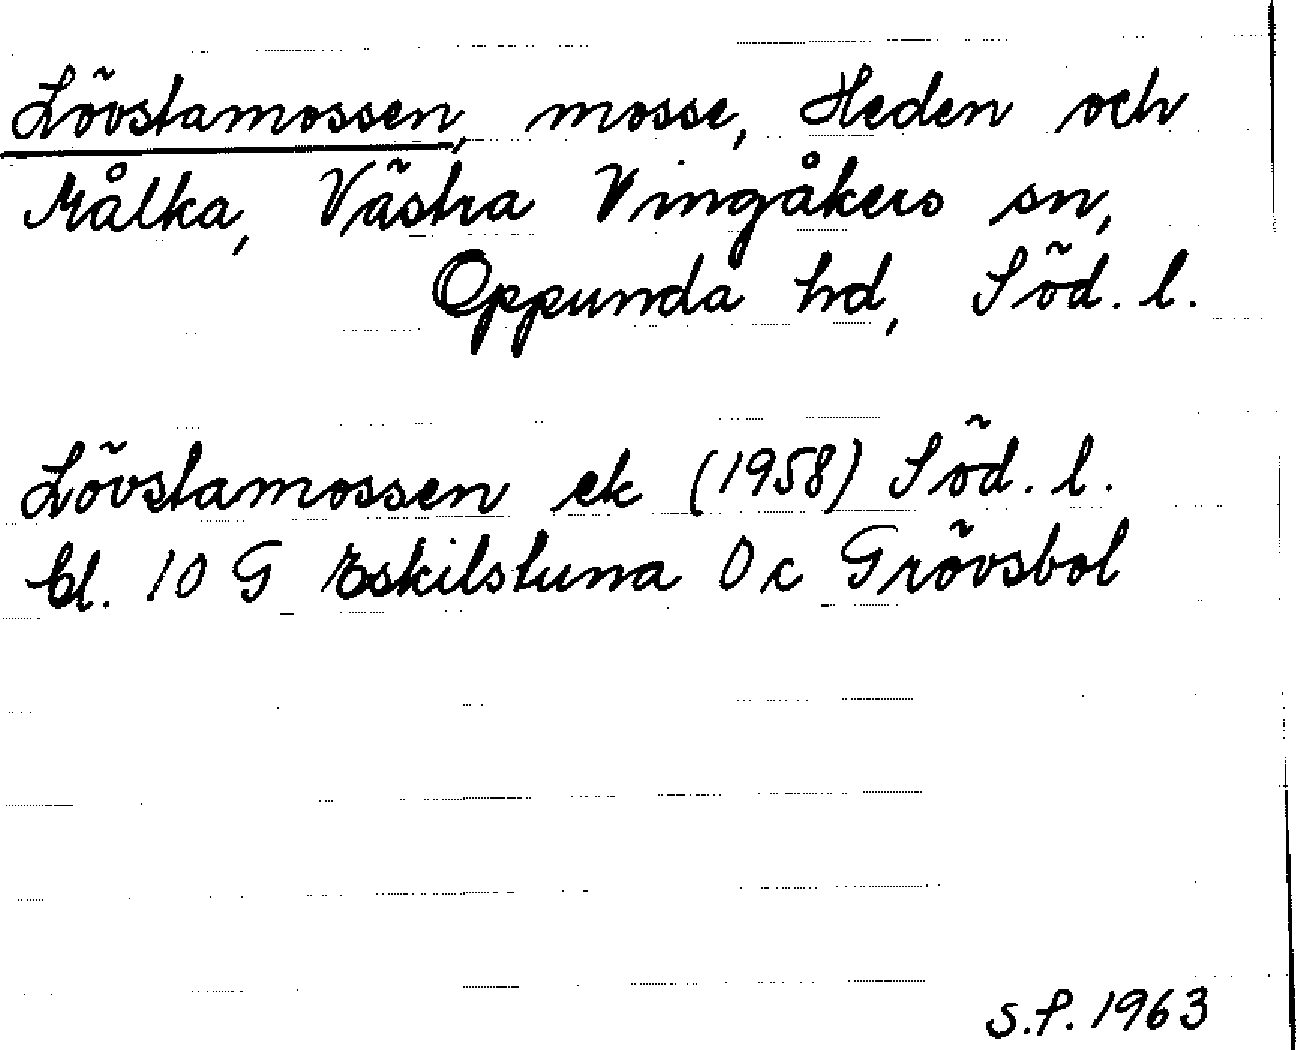 Lövstamossen, mosse, Heden och
Målka, Västra Vingåkers sn,
Oppunda hd, Söd. l.
Lövstamossen ek (1958) Söd. l.
bl. 10 G Eskilstuna 0 c Grövsbol
S.P. 1963